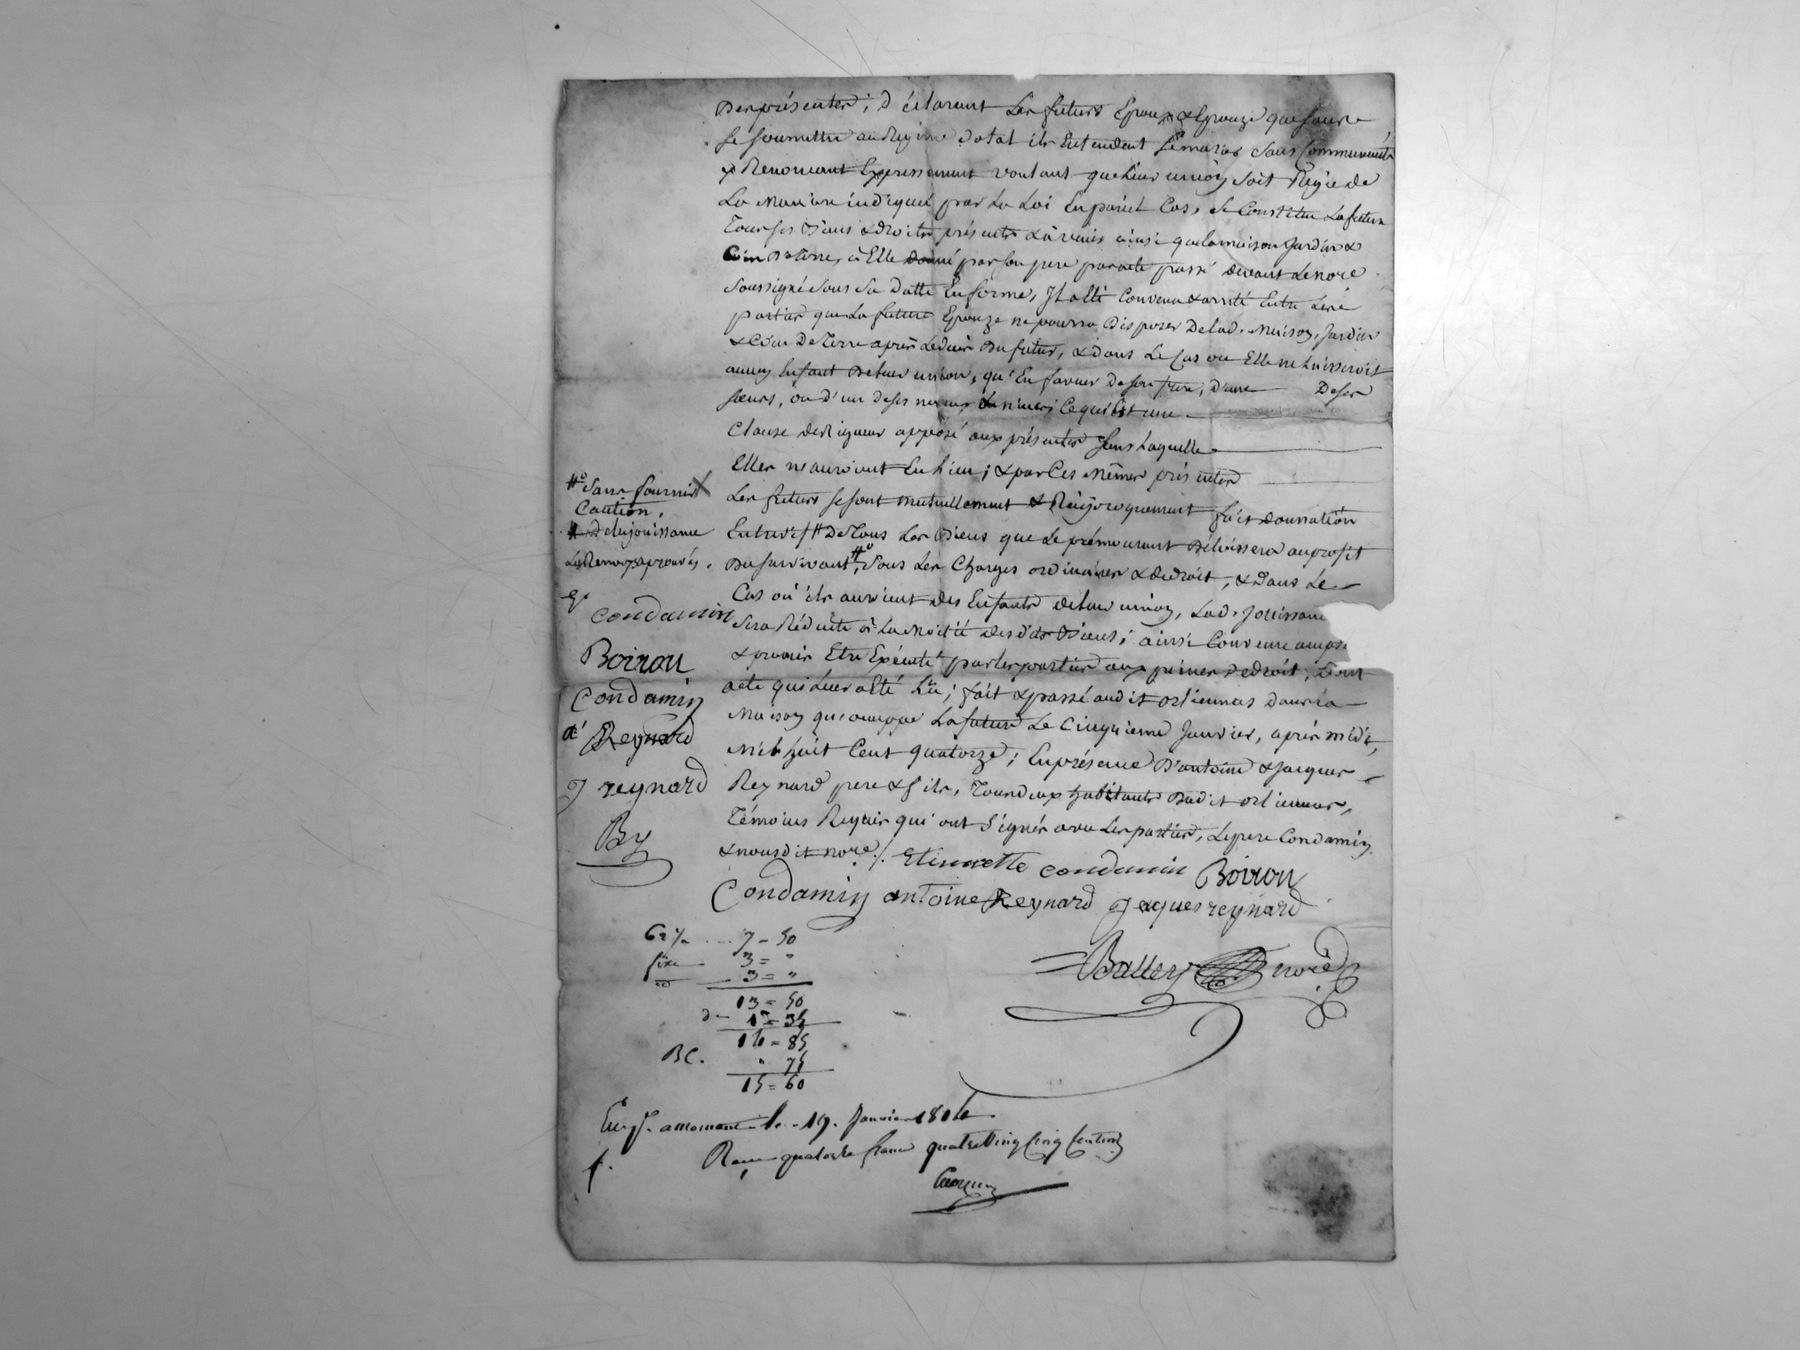 Des présentes; déclarant les futurs Epoux & Epouze que sans
se soumettre au Regime dotal ils Entendent se marier sans Communauté
y Renoncant Expressement voulant que leur union soit Regie de
La maniere indiquée par La Loi En pareil Cas, se Constitue La future
Tous ses Biens & droits présents & à venir ainsi que la maison Jardin &
Coin de terre, à Elle donné par son pere par acte passé devant Le nore
soussigné sous sa datte En forme, Il a Eté Convenu & arrêté Entre Les
parties que La future Epouze ne pourra Disposer De lad. Maison, Jardin
& Coin De Terre après Le décès du futur, & dans Le Cas ou Elle ne laisseroit
aucun Enfant De leur union, qu'En faveur De son frere, d'une De ses
sœurs, ou d'un de ses neveux & nieces; Ce qui Est une
Clause de Rigueur apposé aux présentes sans Laquelle
Elles n'auroient Eu Lieu; & par Ces Mêmes présentes
Les futurs se sont mutuellement & Réciproquement fait donnation
Entrevifs # De Tous Les Biens que Le prémourant Délaissera au profit
Du survivant #o, sous Les Charges ordinaires & de droit, & dans Le
Cas où ils auroient des Enfants de leur union, Lad. Jouissan
sera Réduite à La Moitié desdits Biens; ainsi Convenu
& promis Etre Exécuté par les parties aux peines de droit; Dont
acte qui Leur a Eté Lu; fait & passé audit orliennas dans la
Maison qu'occuppe La future Le Cinquieme Janvier, après midi,
Mil huit Cent quatorze; En présence D'antoine & Jacques
Reynard pere & fils, Tous deux habitants Dudit orliennas,
Témoins Requis qui ont signés avec Les parties, Le pere Condamin
& nousdit nore./.
#o sans fournir
Caution.
# De la jouissance
Les Renvoys aprouvés.
E. condamin
Boiron
Condamin
a Reynard
J reynard
By
Etiennette condamin Boiron
Condamin antoine Reynard Jaques reynard
nore
7 - 50
fixe 3 = "
id 3 = "
13 = 50
d- 1 = 35
14 = 85
BC. " 75
15 = 60
Enr. a mornant le 19 Janvier 1814
R quatorze francs quatre Ving Cinq Centimes